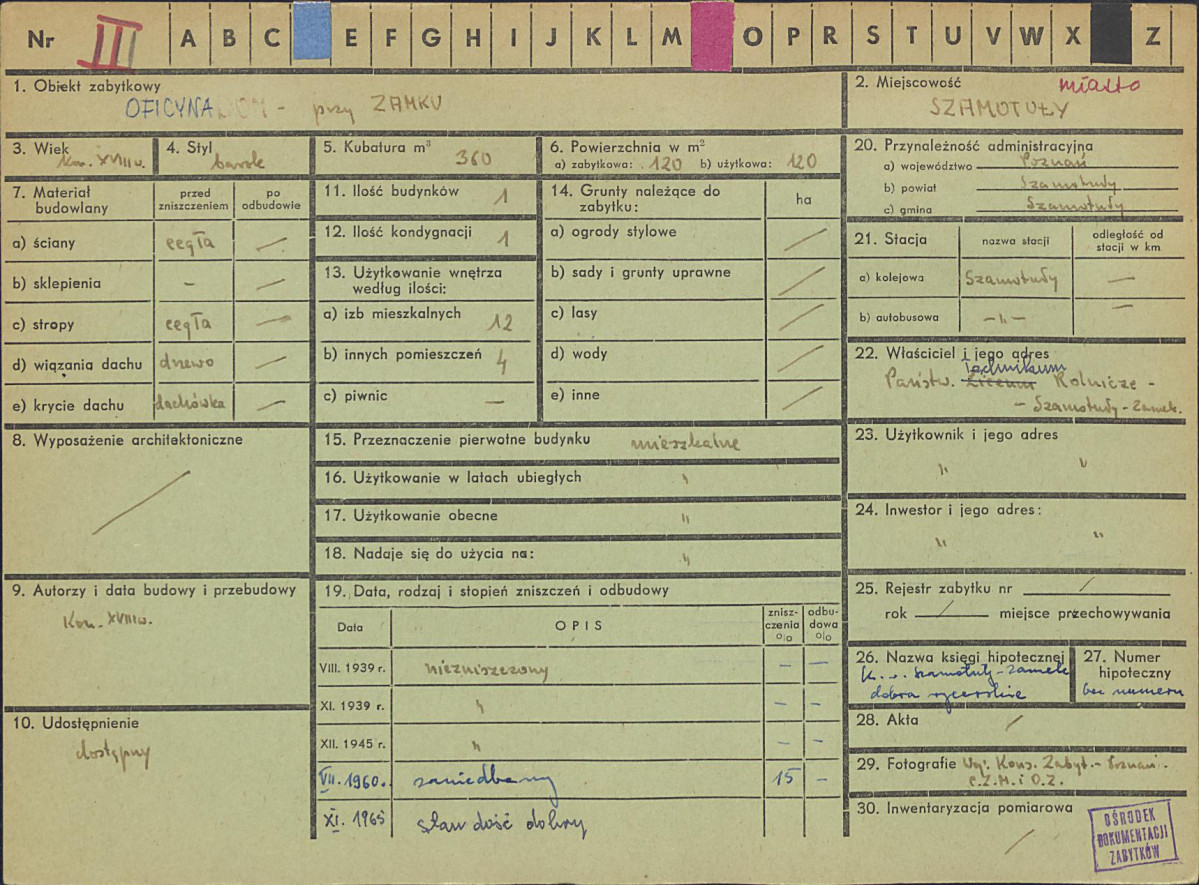 Nr III A B C E F G H I J K L M O P R S T U V W X Z
1. Obiekt zabytkowy
OFICYNA - przy ZAMKU
2. Miejscowość miasto
SZAMOTUŁY
3. Wiek
kon. XVIII w.
4. Styl
barok
5. Kubatura m³ 360
6. Powierzchnia w m²
a) zabytkowa: 120 b) użytkowa: 120
20. Przynależność administracyjna
a) województwo Poznań
b) powiat Szamotuły
c) gmina Szamotuły
7. Materiał budowlany
przed zniszczeniem
po odbudowie
a) ściany cegła —
b) sklepienia - —
c) stropy cegła —
d) wiązania dachu drzewo —
e) krycie dachu dachówka —
11. Ilość budynków 1
12. Ilość kondygnacji 1
13. Użytkowanie wnętrza
według ilości:
a) izb mieszkalnych 12
b) innych pomieszczeń 4
c) piwnic —
14. Grunty należące do
zabytku:
ha
a) ogrody stylowe /
b) sady i grunty uprawne /
c) lasy /
d) wody /
e) inne /
21. Stacja
nazwa stacji
odległość od
stacji w km
a) kolejowa Szamotuły —
b) autobusowa —„— —
22. Właściciel i jego adres
Technikum
Państw. Liceum Rolnicze -
- Szamotuły - Zamek.
8. Wyposażenie architektoniczne
/
15. Przeznaczenie pierwotne budynku mieszkalne
16. Użytkowanie w latach ubiegłych „
17. Użytkowanie obecne „
18. Nadaje się do użycia na: „
23. Użytkownik i jego adres
„ „
24. Inwestor i jego adres:
„ „
9. Autorzy i data budowy i przebudowy
Kon. XVIII w.
19. Data, rodzaj i stopień zniszczeń i odbudowy
Data
OPIS
znisz-
czenia
o|o
odbu-
dowa
o|o
VIII. 1939 r. niezniszczony — —
XI. 1939 r. „ — —
XII. 1945 r. „ — —
VII. 1960. zaniedbany 15 -
XI. 1965 stan dość dobry
25. Rejestr zabytku nr /
rok / miejsce przechowywania
26. Nazwa księgi hipotecznej
K. w. Szamotuły-Zamek
dobra rycerskie
27. Numer
hipoteczny
bez numeru
10. Udostępnienie
dostępny
28. Akta /
29. Fotografie Woj. Kons. Zabyt. - Poznań.
C.Z.M. i O.Z.
30. Inwentaryzacja pomiarowa
/
OŚRODEK
DOKUMENTACJI
ZABYTKÓW